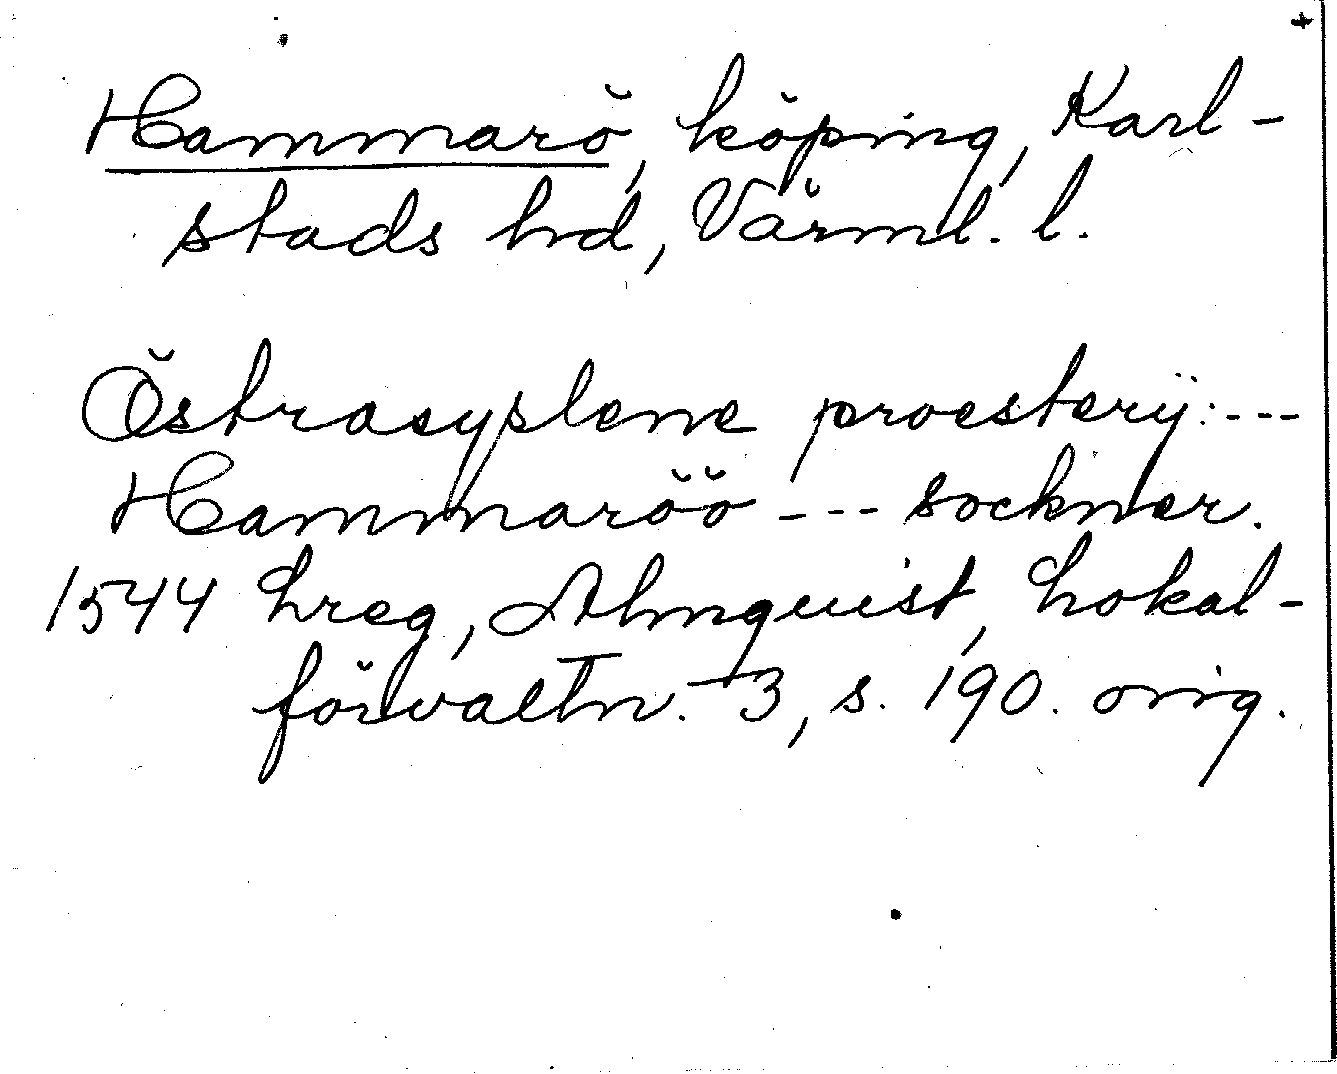 Hammarö, köping, Karl-
stads hd, Värml. l.
Östrasyslene proesterij: ---
Hammaröö --- sockner.
1544 Lreg, Almquist, Lokal-
förvaltn. 3, s. 190. orig.